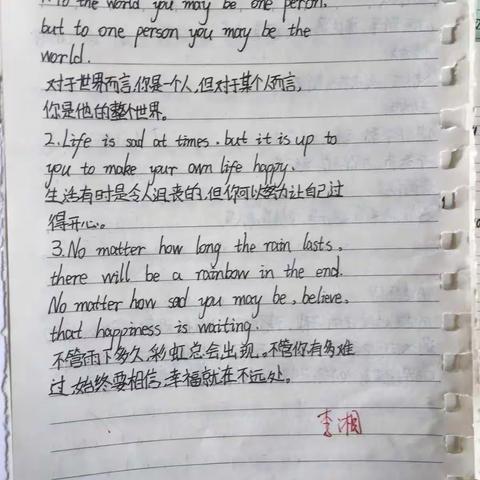 1. To the world you may be one person.
but to one person you may be the
world.
对于世界而言,你是一个人,但对于某个人而言,
你是他的整个世界。
2. Life is sad at times. but it is up to
you to make your own life happy.
生活有时是令人沮丧的,但你可以努力让自己过
得开心。
3. No matter how long the rain lasts.
there will be a rainbow in the end.
No matter how sad you may be, believe.
that happiness is waiting.
不管雨下多久,彩虹总会出现。不管你有多难
过,始终要相信,幸福就在不远处。
李湘